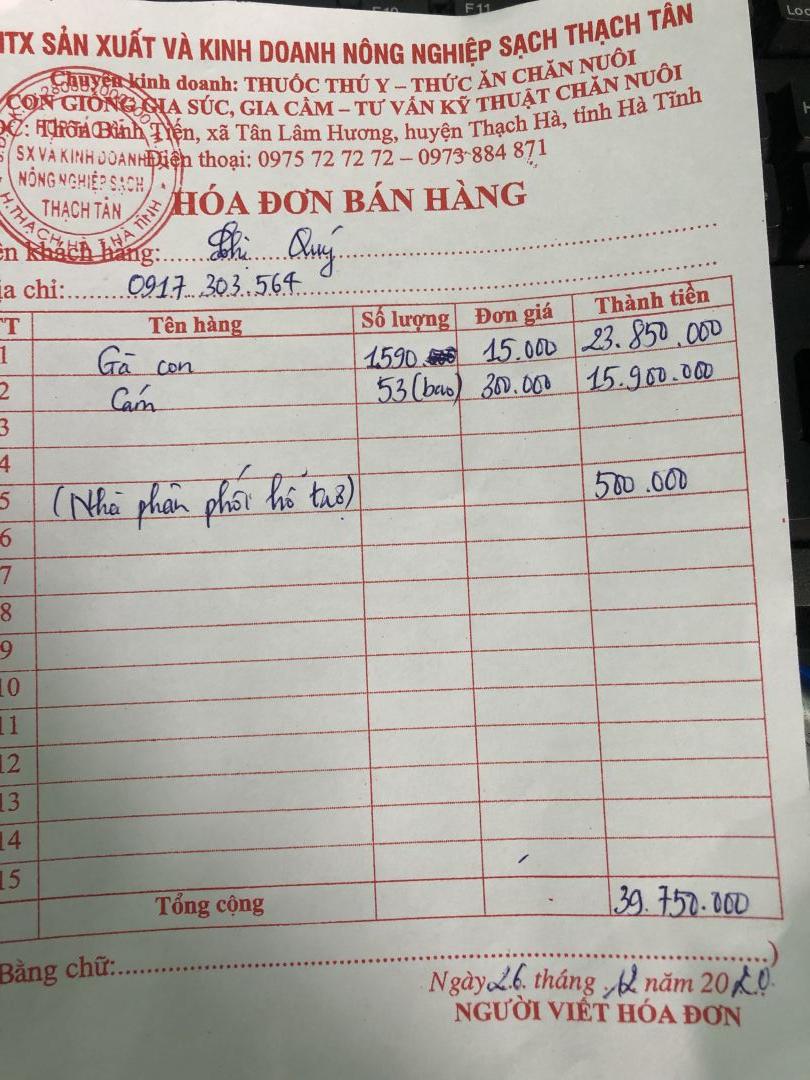 HTX SẢN XUẤT VÀ KINH DOANH NÔNG NGHIỆP SẠCH THẠCH TÂN
Chuyên kinh doanh: THUỐC THÚ Y – THỨC ĂN CHĂN NUÔI
CON GIỐNG GIA SÚC, GIA CẦM – TƯ VẤN KỸ THUẬT CHĂN NUÔI
ĐC: Thôn Bình Tiến, xã Tân Lâm Hương, huyện Thạch Hà, tỉnh Hà Tĩnh
Điện thoại: 0975 72 72 72 – 0973 884 871
SX VÀ KINH DOANH
NÔNG NGHIỆP SẠCH
THẠCH TÂN
H. THẠCH HÀ, T. HÀ TĨNH
HÓA ĐƠN BÁN HÀNG
ên khách hàng: Quý
ịa chỉ: 0917 303 564
TT Tên hàng Số lượng Đơn giá Thành tiền
1 Gà con 1590 15.000 23.850.000
2 Cám 53 (bao) 300.000 15.900.000
3
4
5 (Nhà phân phối hỗ trợ) 500.000
6
7
8
9
10
11
12
13
14
15
Tổng cộng 39.750.000
Bằng chữ: )
Ngày 26 tháng 12 năm 2020
NGƯỜI VIẾT HÓA ĐƠN
F11